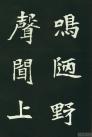 鳴陋野
聲聞上